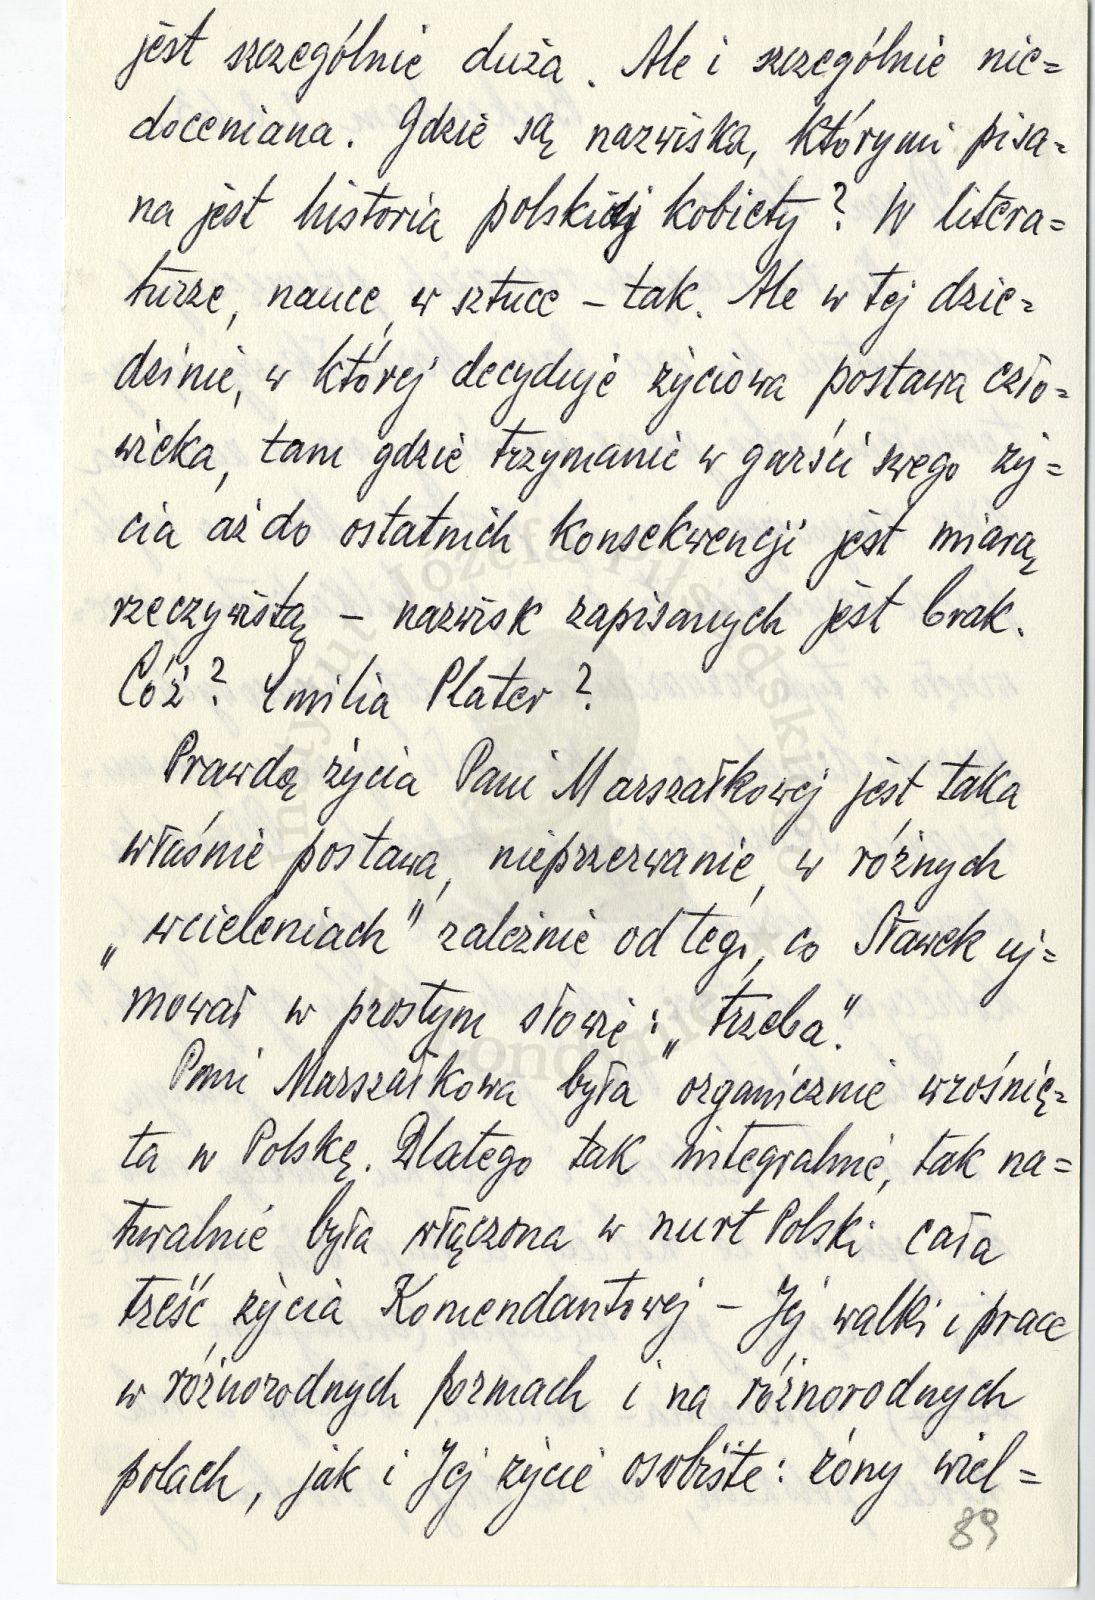 jest szczególnie duża. Ale i szczególnie nie=
doceniana. Gdzie są nazwiska, którymi pisa=
na jest historia polskiej kobiety? W litera=
turze, nauce, w sztuce – tak. Ale w tej dzie=
dzinie, w której decyduje życiowa postawa czło=
wieka, tam gdzie trzymanie w garści swego ży=
cia aż do ostatnich konsekwencji jest miarą
rzeczywistą – nazwisk zapisanych jest brak.
Cóż? Emilia Plater?
Prawdą życia Pani Marszałkowej jest taka
właśnie postawa, nieprzerwanie, w różnych
„wcieleniach" zależnie od tego, co Sławek uj=
mował w prostym słowie: „trzeba".
Pani Marszałkowa była organicznie wrośnię=
ta w Polskę. Dlatego tak integralnie, tak na=
turalnie była włączona w nurt Polski cała
treść życia Komendantowej – Jej walki i prace
w różnorodnych formach i na różnorodnych
polach, jak i Jej życie osobiste: żony wiel=
89
Instytut Józefa Piłsudskiego
Londynie